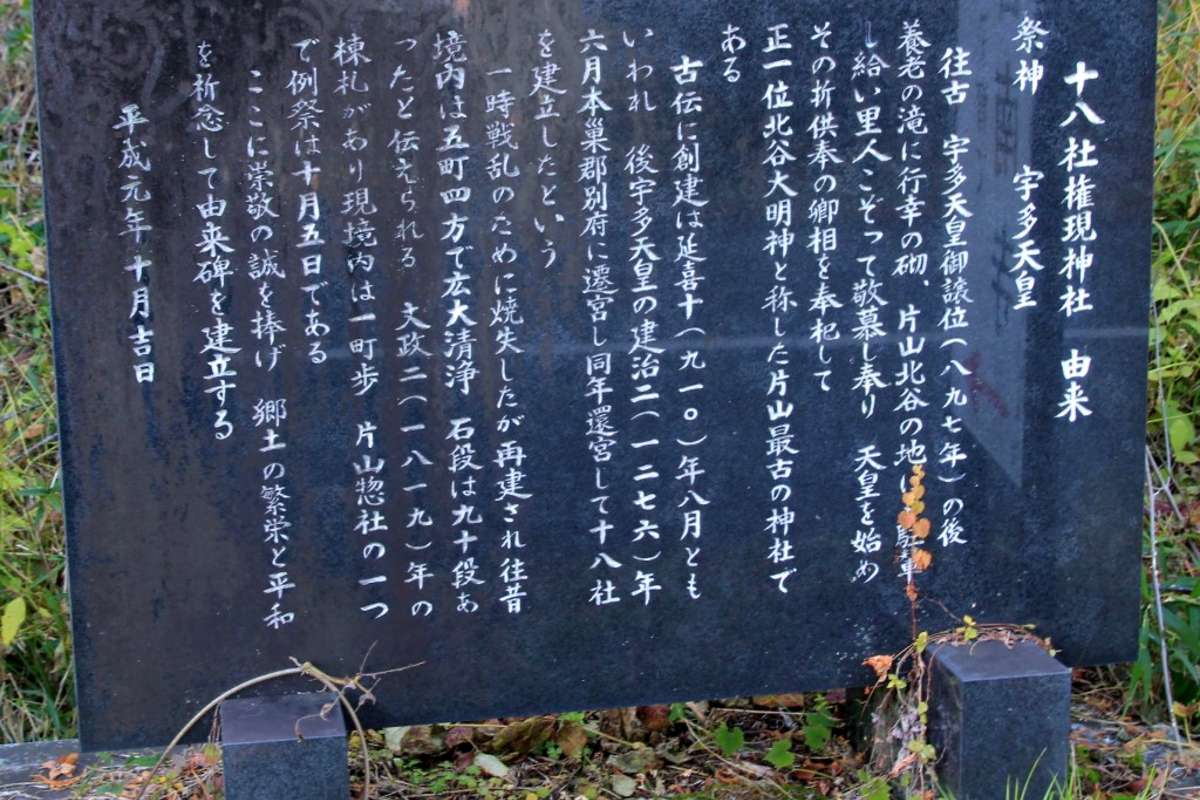 十八社権現神社　由来
祭神　　宇多天皇
往古　宇多天皇御譲位（八九七年）の後
養老の滝に行幸の砌、片山北谷の地に駐車
し給い里人こぞって敬慕し奉り　天皇を始め
その折供奉の卿相を奉祀して
正一位北谷大明神と称した片山最古の神社で
ある
古伝に創建は延喜十（九一〇）年八月とも
いわれ　後宇多天皇の建治二（一二七六）年
六月本巣郡別府に遷宮し同年還宮して十八社
を建立したという
一時戦乱のために焼失したが再建され往昔
境内は五町四方で広大清浄　石段は九十段あ
ったと伝えられる　文政二（一八一九）年の
棟札があり現境内は一町歩　片山惣社の一つ
で例祭は十月五日である
ここに崇敬の誠を捧げ　郷土の繁栄と平和
を祈念して由来碑を建立する
平成元年十月吉日